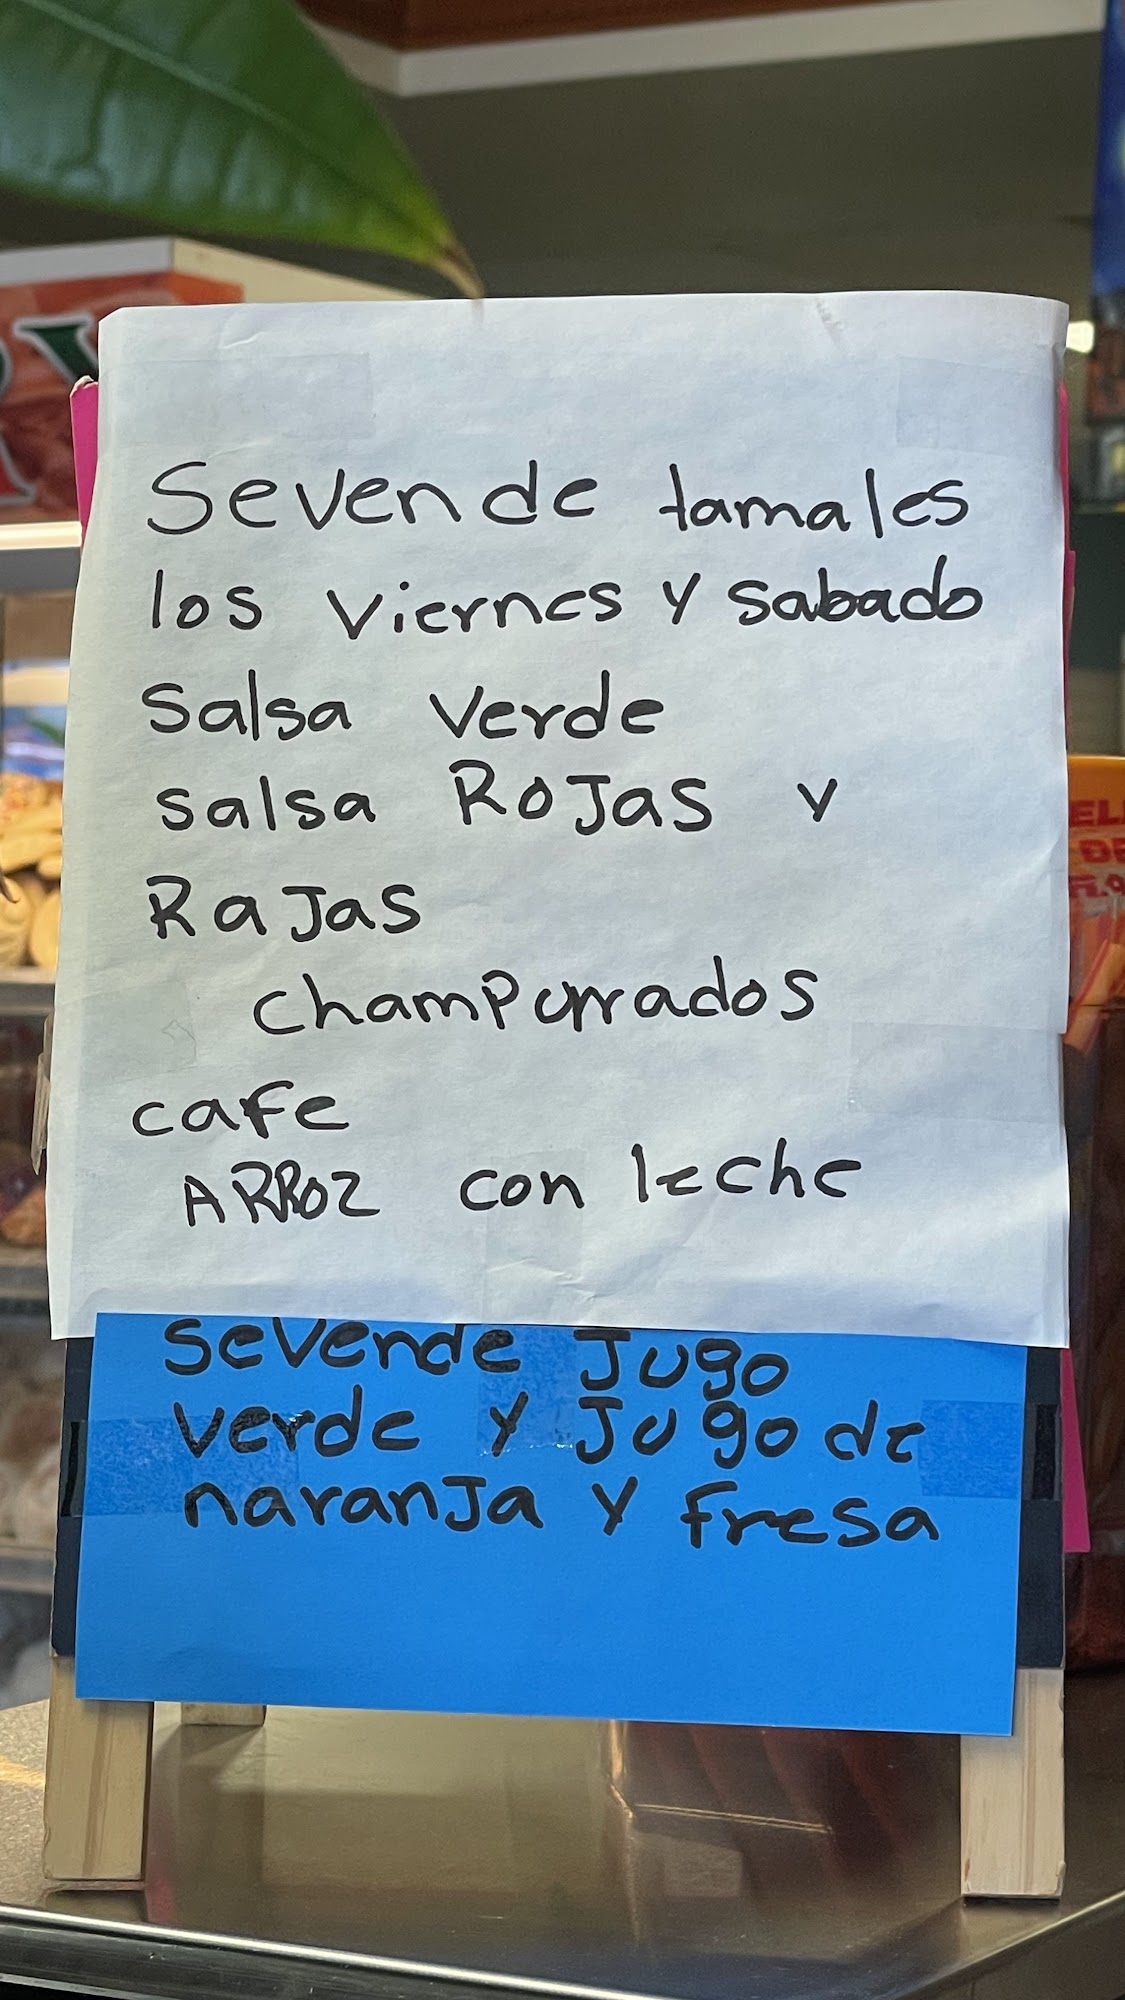 Sevende tamales
los viernes y sabado
Salsa verde
salsa ROJAS y
RAJAS
champurrados
cafe
ARROZ con leche
Sevende Jugo
verde y Jugo de
naranja y fresa